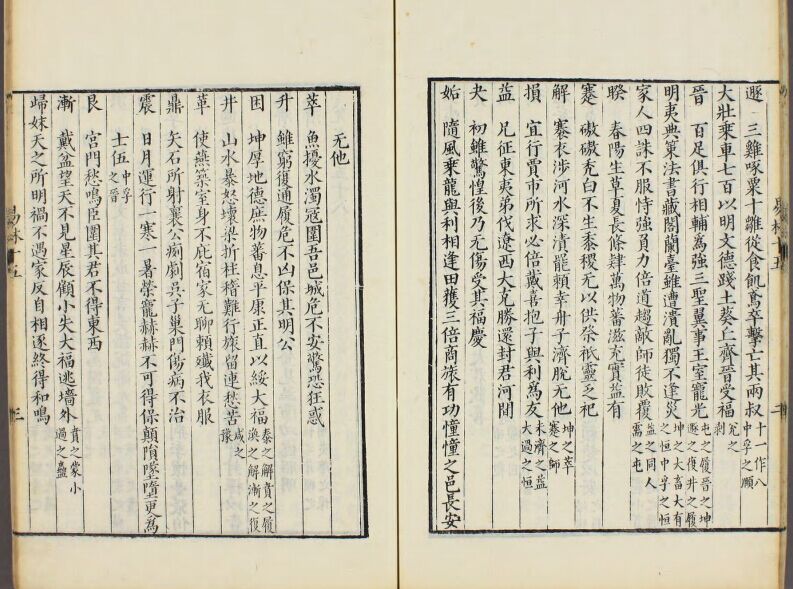 遯 三雞啄粟十雛從食飢鳶卒擊亡其兩叔 十一作八中孚之頤
大壯 乘車七百以明文德踐土葵丘齊晉受福 兊之剥
晉 百足俱行相輔為強三聖翼事王室寵光 屯之履晉之坤遯之復升之履
明夷 典策法書藏閣蘭臺雖遭潰亂獨不逢災 坤之大畜大有之恒中孚之恒
家人 四誅不服恃強負力倍道趨敵師徒敗覆 益之同人需之屯
睽 春陽生草夏長條肄萬物蕃滋充實益有
蹇 磝磝秃白不生黍稷无以供祭祇靈之祀
解 褰衣涉河水深漬罷頼幸舟子濟脫无他 坤之萃蹇之師
損 宜行賈市所求必倍戴喜抱子與利為友 未濟之益大過之恒
益 凡征東夷弟伐遼西大克勝還封君河間
夬 初雖驚惶後乃无傷受其福慶
姤 隨風乘龍與利相逢田獲三倍商旅有功憧憧之邑長安
无他
萃 魚擾水濁寇圍吾邑城危不安驚恐狂惑
升 雖窮復通履危不凶保其明公
困 坤厚地德庶物蕃息平康正直以綏大福 泰之解賁之履渙之解漸之復咸之豫
井 山水暴怒壞梁折柱稽難行旅留連愁苦
革 使燕築室身不庇宿家无聊頼孅我衣服
鼎 矢石所射襄公痢劇吳子巢門傷病不治
震 日月運行一寒一暑榮寵赫赫不可得保顛隕墜墮更為
士伍 中孚之晉
艮 宮門愁鳴臣圍其君不得東西
漸 戴盆望天不見星辰顧小失大福逃墻外 賁之蒙小過之蠱
歸妹 天之所明禍不遇家反自相逐終得和鳴
易林十五
易林十五
二
三